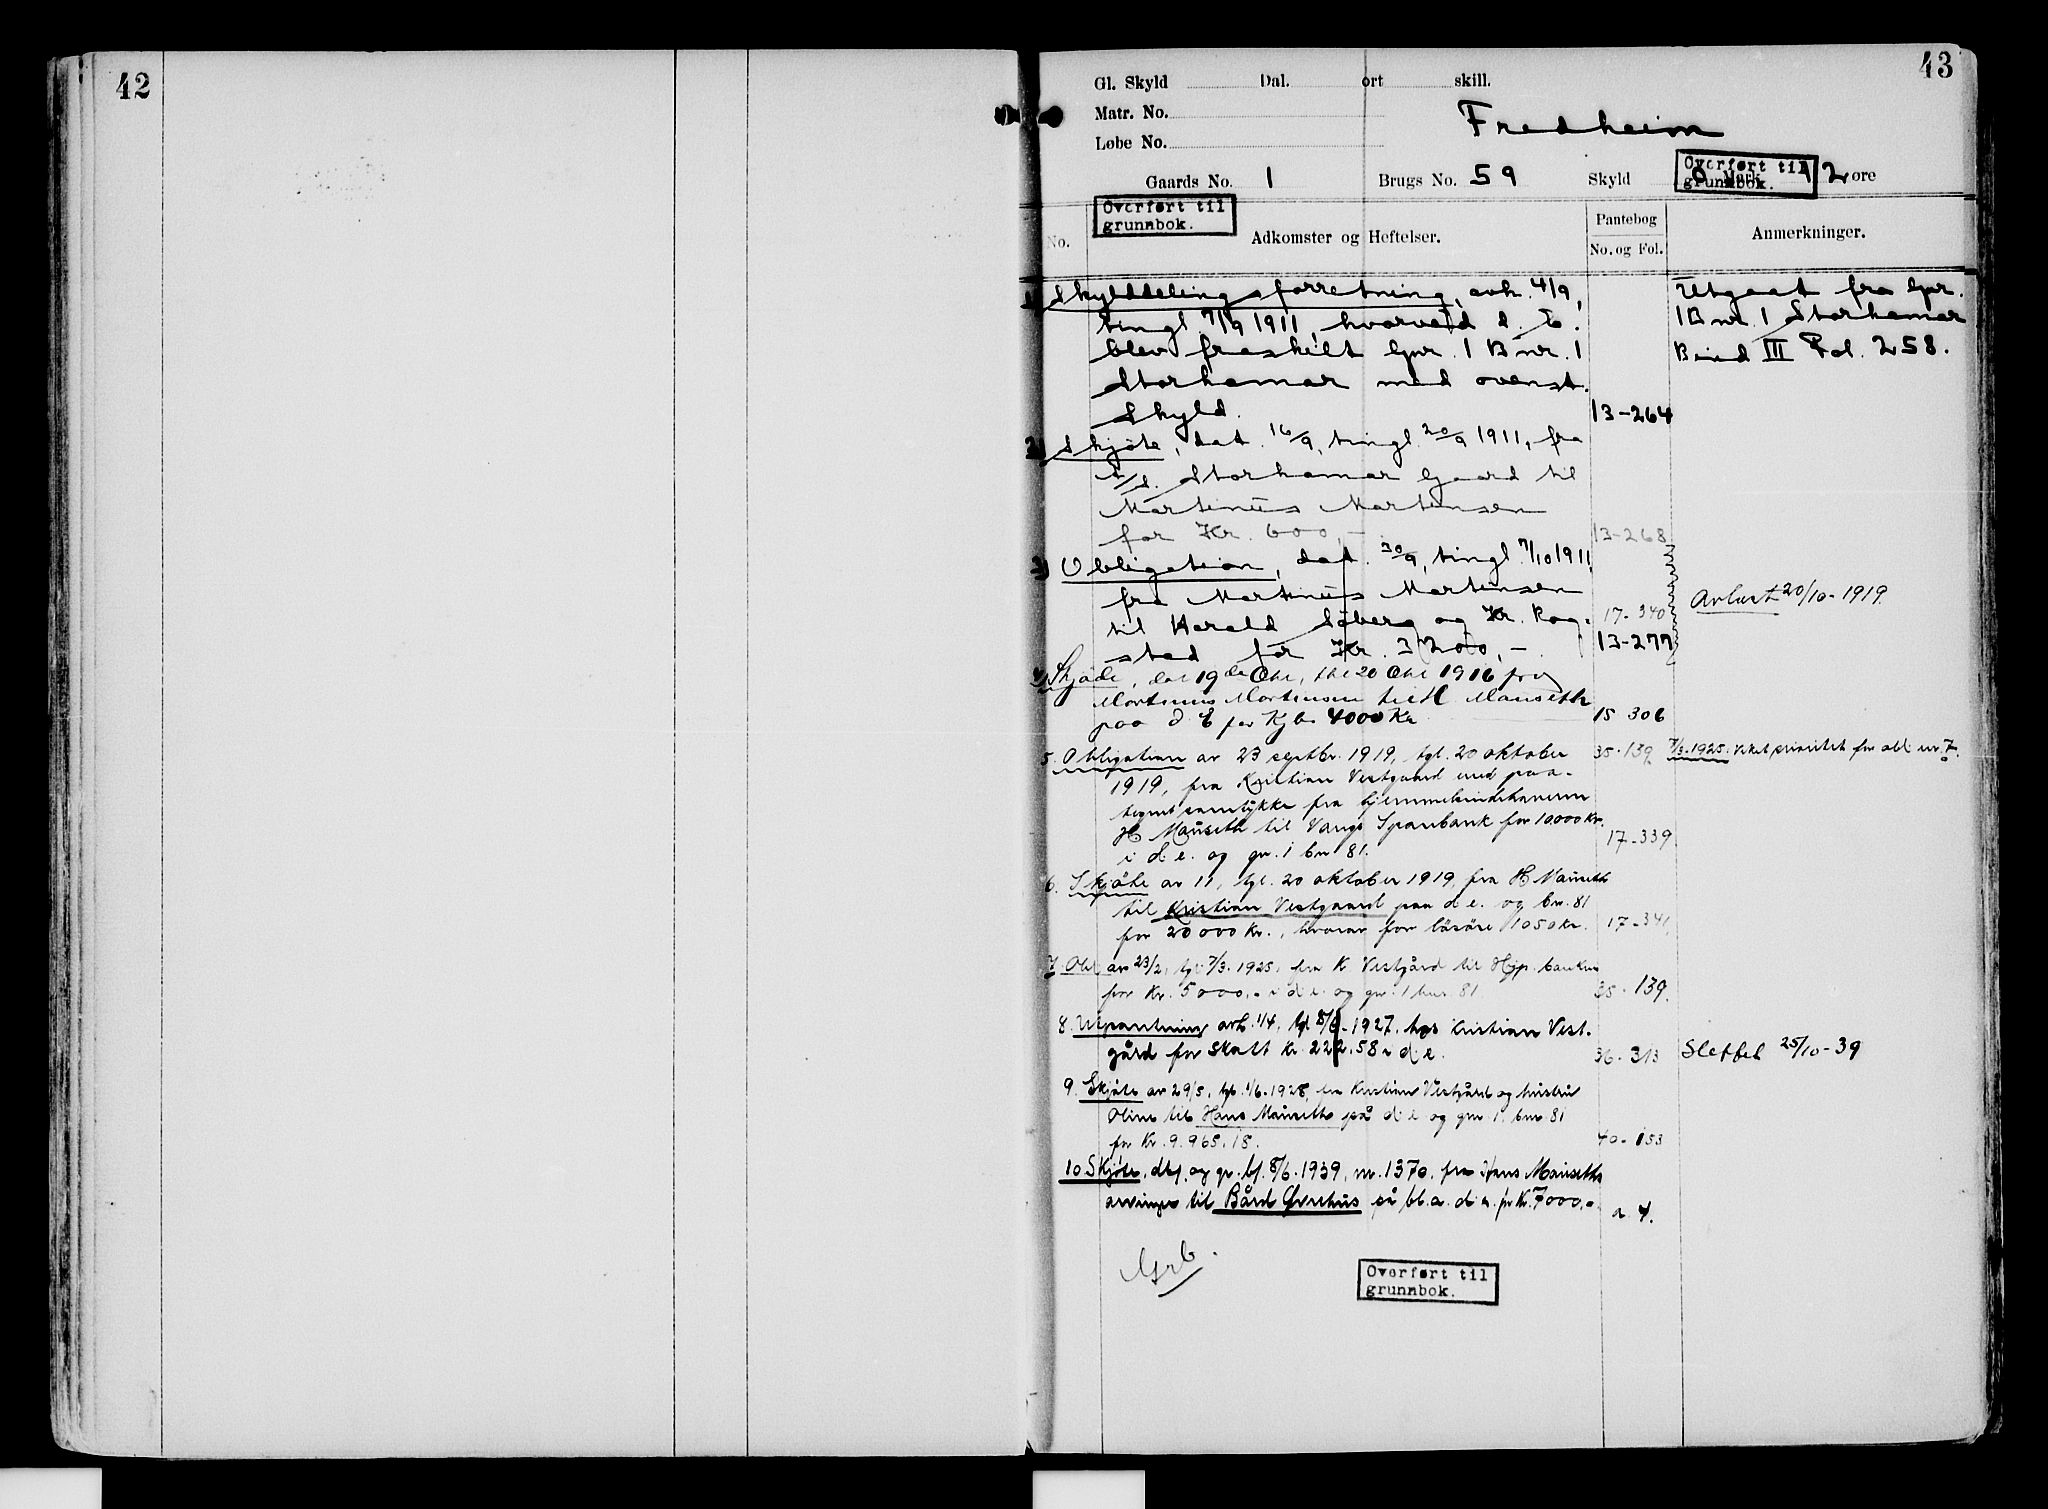 42
43
Gl. Skyld Dal. ort skill.
Matr. No.
Løbe No.
Fredheim
Gaards No. 1 Brugs No. 59 Skyld 0 Mark 12 øre
Overført til
grunnbok.
Overført til
grunnbok.
No. Adkomster og Heftelser. Pantebog No. og Fol. Anmerkninger.
1) Skylddelingsforretning, avh. 4/9,
tingl. 7/9 1911, hvorved d. E.
blev fraskilt Gnr. 1 Bnr. 1
Storhamar med ovenst.
Skyld. 13-264
Utgaat fra Gnr.
1 Bnr. 1 Storhamar
Bind III Fol. 258.
2) Skjøte, dat. 16/9, tingl. 20/9 1911, fra
A/S. Storhamar Gaard til
Martinius Martensen
for Kr. 600,- 13-268
3) Obligation, dat. 30/9, tingl. 7/10 1911,
fra Martinius Martensen
til Harald Søberg og Kr. Rog- 17-340
stad for Kr. 3200,-. 13-277
Avlæst 20/10-1919.
4) Skjøde, dat 19de Okt, thl 20 Okt 1916 fra
Martinius Martensen til H Mauseth
paa d E for Kjbs 4000 Kr 15 306
5. Obligation av 23 septbr. 1919, tgl. 20 oktober 35-139
1919, fra Kristian Vestgaard med paa-
tegnet samtykke fra hjemmelsindehaveren
H Mauseth til Vangs Sparebank for 10.000 Kr.
i d. e. og gn. 1 bn 81. 17-339
7/3-1925. Veket prioritet for obl. nr. 7.
6. Skjøte av 11, tgl. 20 oktober 1919, fra H Mauseth
til Kristian Vestgaard paa d e. og bn. 81
for 20000 Kr., hvorav for løsøre 1050 kr. 17-341.
7. Obl av 23/2, tgl. 7/3. 1925, fra K Vestgård til Hyp. banken
for Kr. 5000,- i d. e. og gnr. 1 bnr. 81 35-139.
8. Utpantning avh. 1/4, tgl 8/6-1927, hos Kristian Vest-
gård for skatt kr. 222.58 i d. e. 36-313
Slettet 25/10-39
9. Skjøte av 29/5, tgl. 1/6-1928, fra Kristian Vestgård og hustru
Oline til Hans Mauseth på d. e og gnr 1, bnr 81
for Kr. 9.965.18. 40-153
10 Skjøte, dtg. og gr. bf. 8/6-1939, nr. 1370, fra Hans Mauseths
arvinger til Bård Øvrehus på bl. a. d. e. for Kr. 7000,-. a 4.
Grb.
Overført til
grunnbok.